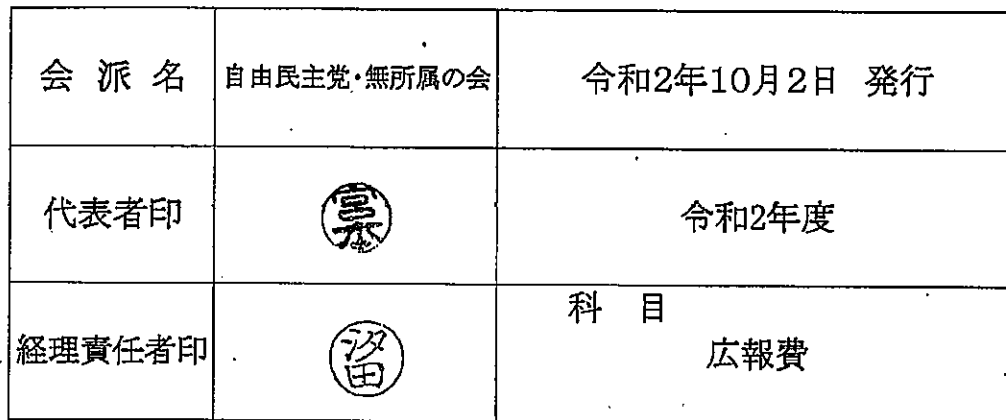 会派名 自由民主党・無所属の会 令和2年10月2日 発行
代表者印 令和2年度
経理責任者印 汐田 科目
広報費